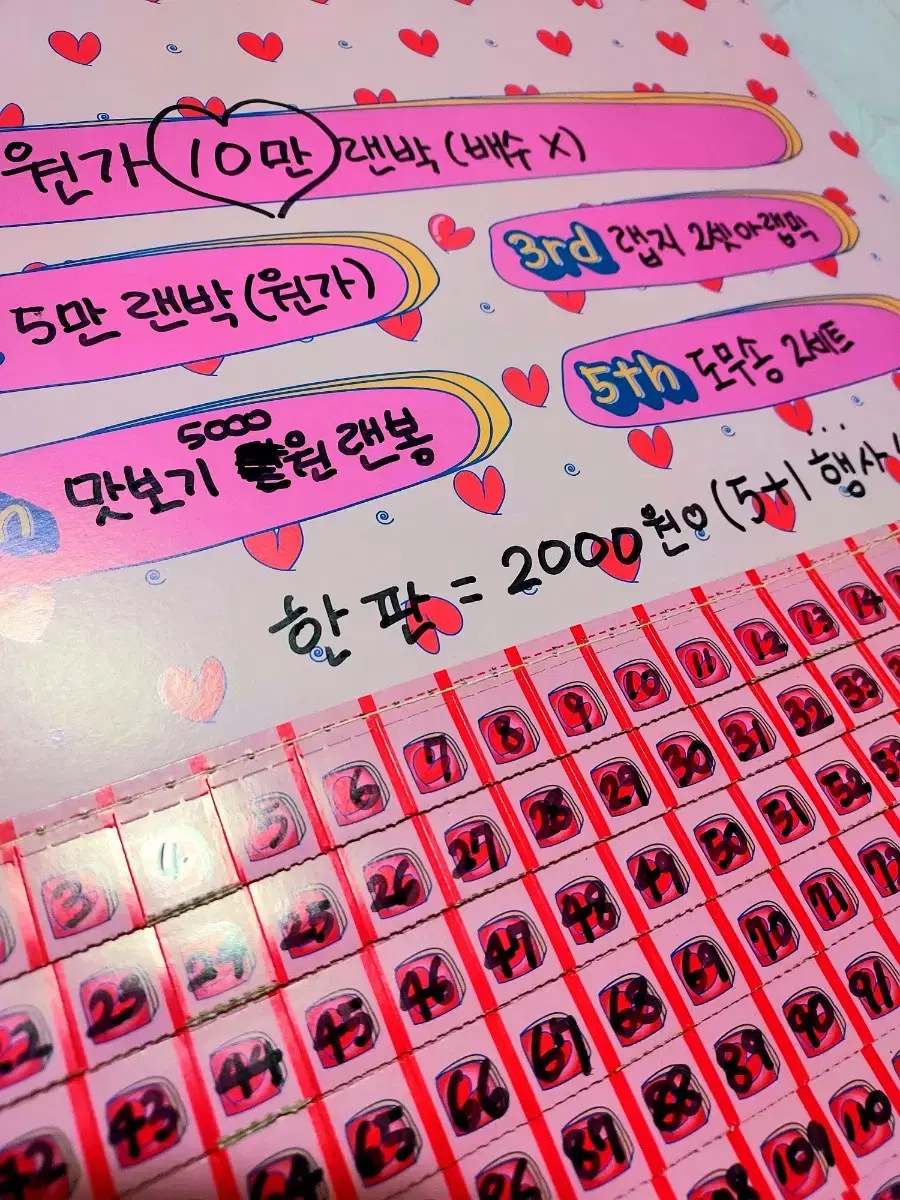 원가 10만 랜박 (배수 X)
5만 랜박 (원가)
3rd 랩지 2셋 아랩믹
5th 도무송 2세트
5000
맛보기 원 랜봉
한 판 = 2000원♡ (5+1 행사
3 4 5 6 7 8 9 10 11 12 13 14
22 23 24 25 26 27 28 29 30 31 32 33
42 43 44 45 46 47 48 49 50 51 52 53
64 65 66 67 68 69 70 71 72
86 87 88 89 90 91
109 110